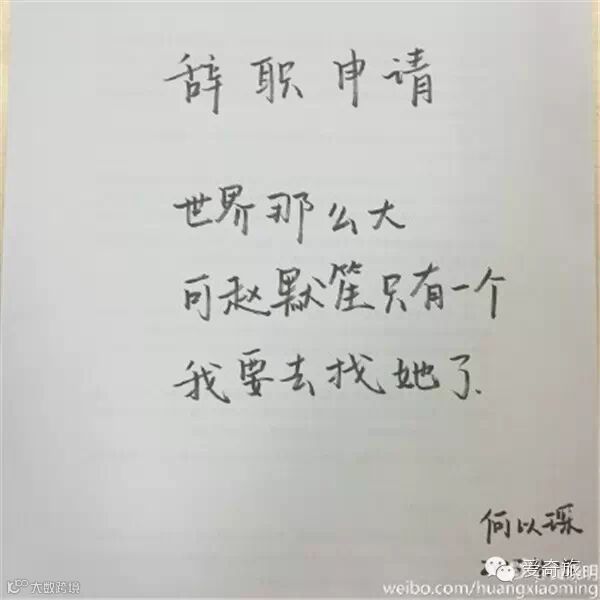 辞职申请
世界那么大
可赵默笙只有一个
我要去找她了
何以琛
爱奇旅
大数跨境
weibo.com/huangxiaoming